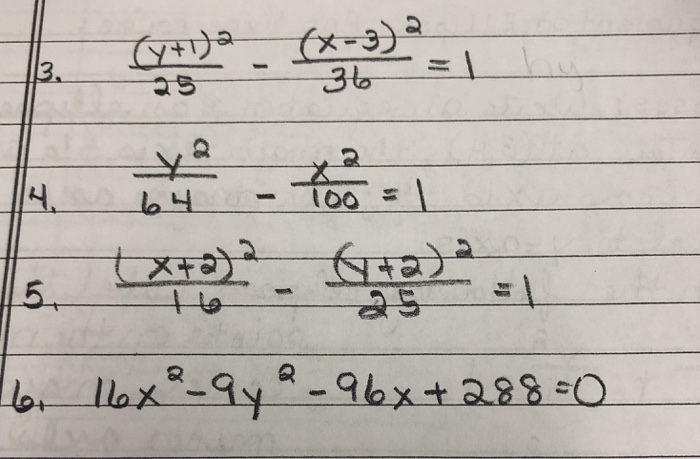 3. (y+1)²/25 - (x-3)²/36 = 1
4. y²/64 - x²/100 = 1
5. (x+2)²/16 - (y+2)²/25 = 1
6. 16x²-9y²-96x+288=0